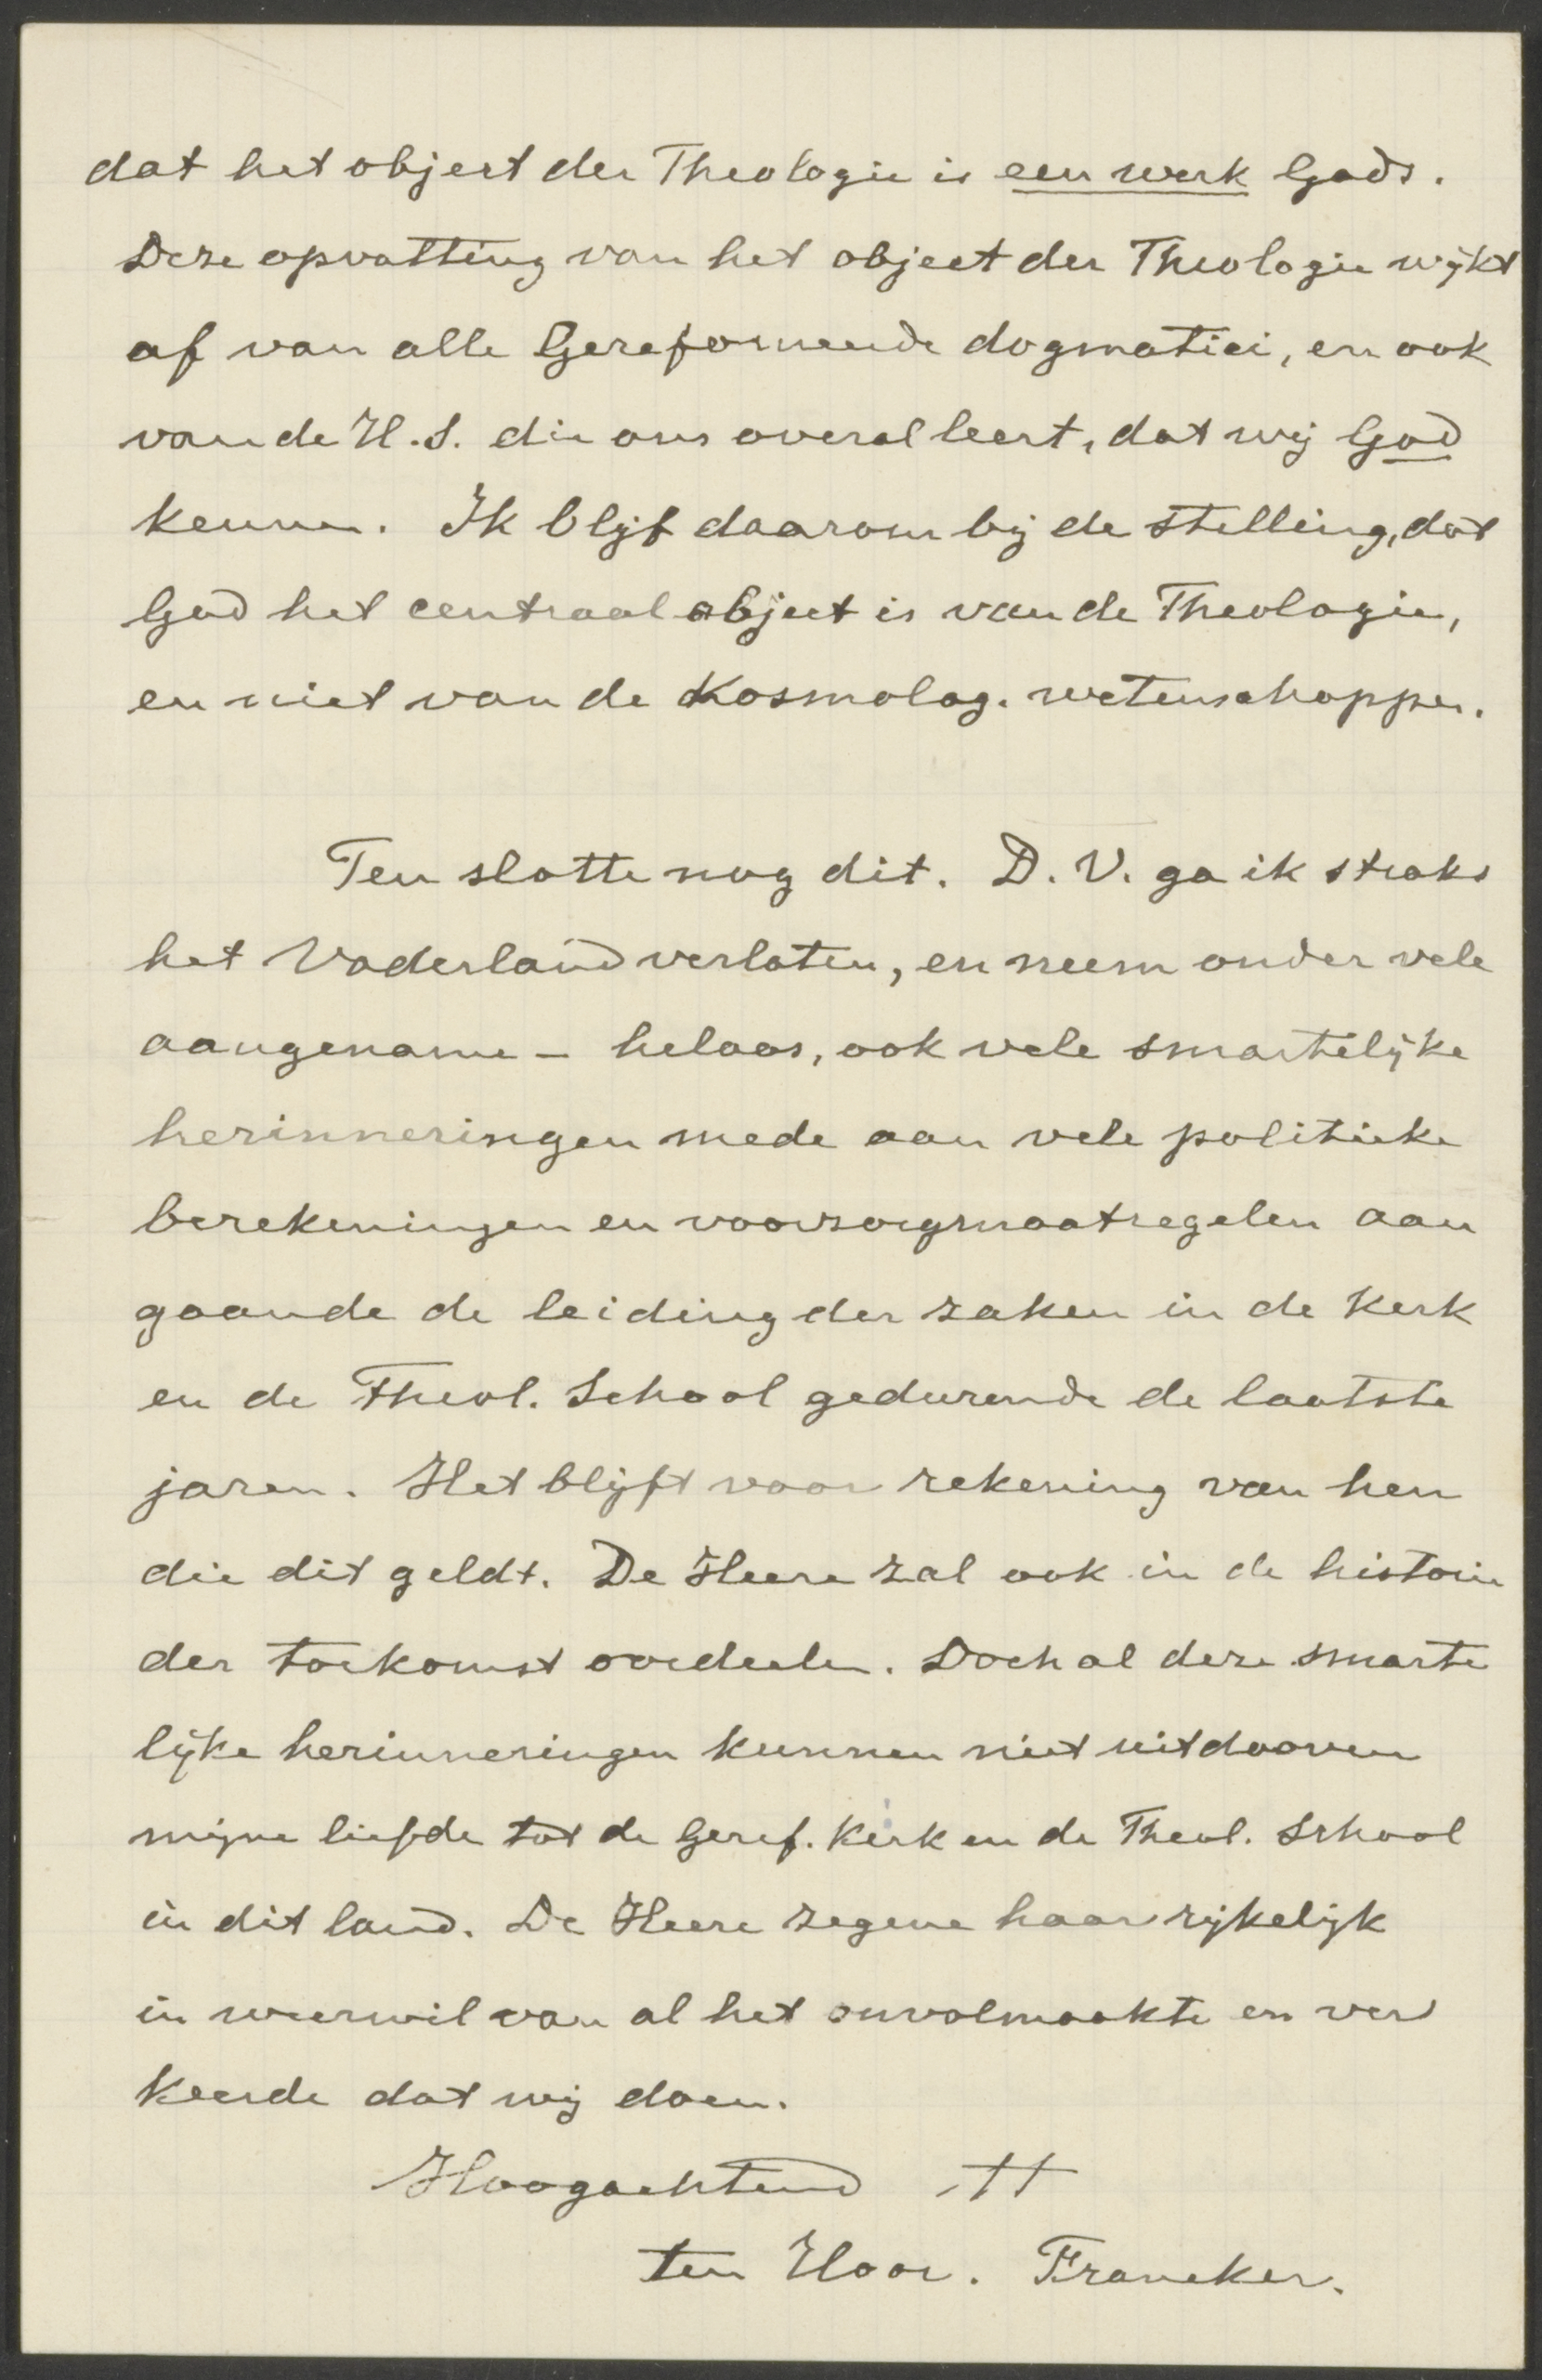 dat het object der Theologie is een werk Gods.
Deze opvatting van het object der Theologie wijkt
af van alle Gereformeerde dogmatici, en ook
van de H.S. die ons overal leert, dat wij God
kennen. Ik blijf daarom bij de stelling, dat
God het centraal object is van de Theologie,
en niet van de Kosmolog. wetenschappen.
Ten slotte nog dit. D.V. ga ik straks
het Vaderland verlaten, en neem onder vele
aangename - helaas, ook vele smartelijke
herinneringen mede aan vele politieke
berekeningen en voorzorgmaatregelen aan
gaande de leiding der zaken in de Kerk
en de Theol. School gedurende de laatste
jaren. Het blijft voor rekening van hen
die dit geldt. De Heere zal ook in de historie
der toekomst oordeelen. Doch al deze smarte
lijke herinneringen kunnen niet uitdooven
mijne liefde tot de Geref. Kerk en de Theol. School
in dit land. De Heere zegene haar rijkelijk
in weerwil van al het onvolmaakte en ver
keerde dat wij doen.
Hoogachtend tt
ten Hoor. Franeker.